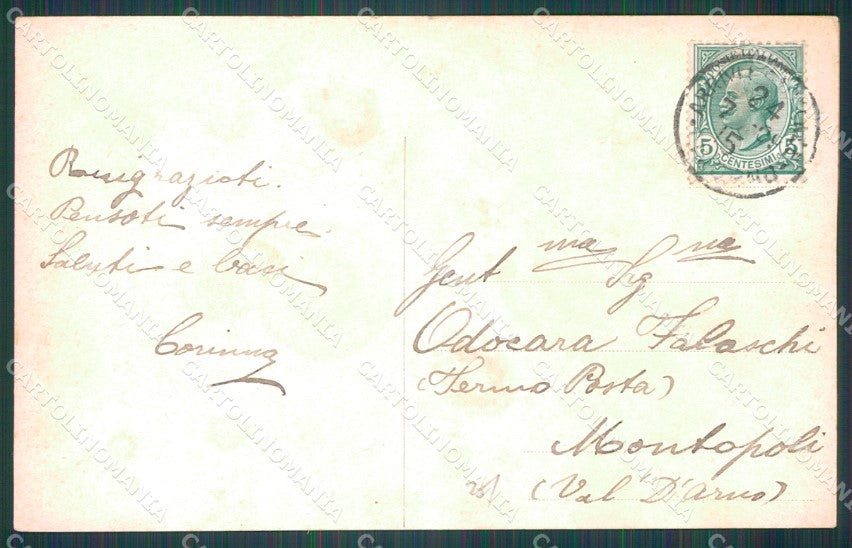 Ringrazioti.
Pensoti sempre.
Saluti e baci
Corinna
Gent ma Sig na
Odocara Falaschi
(Fermo Posta)
Montopoli
(Val D'Arno)
5 5
CENTESIMI
24
15
CARTOLINOMANIA